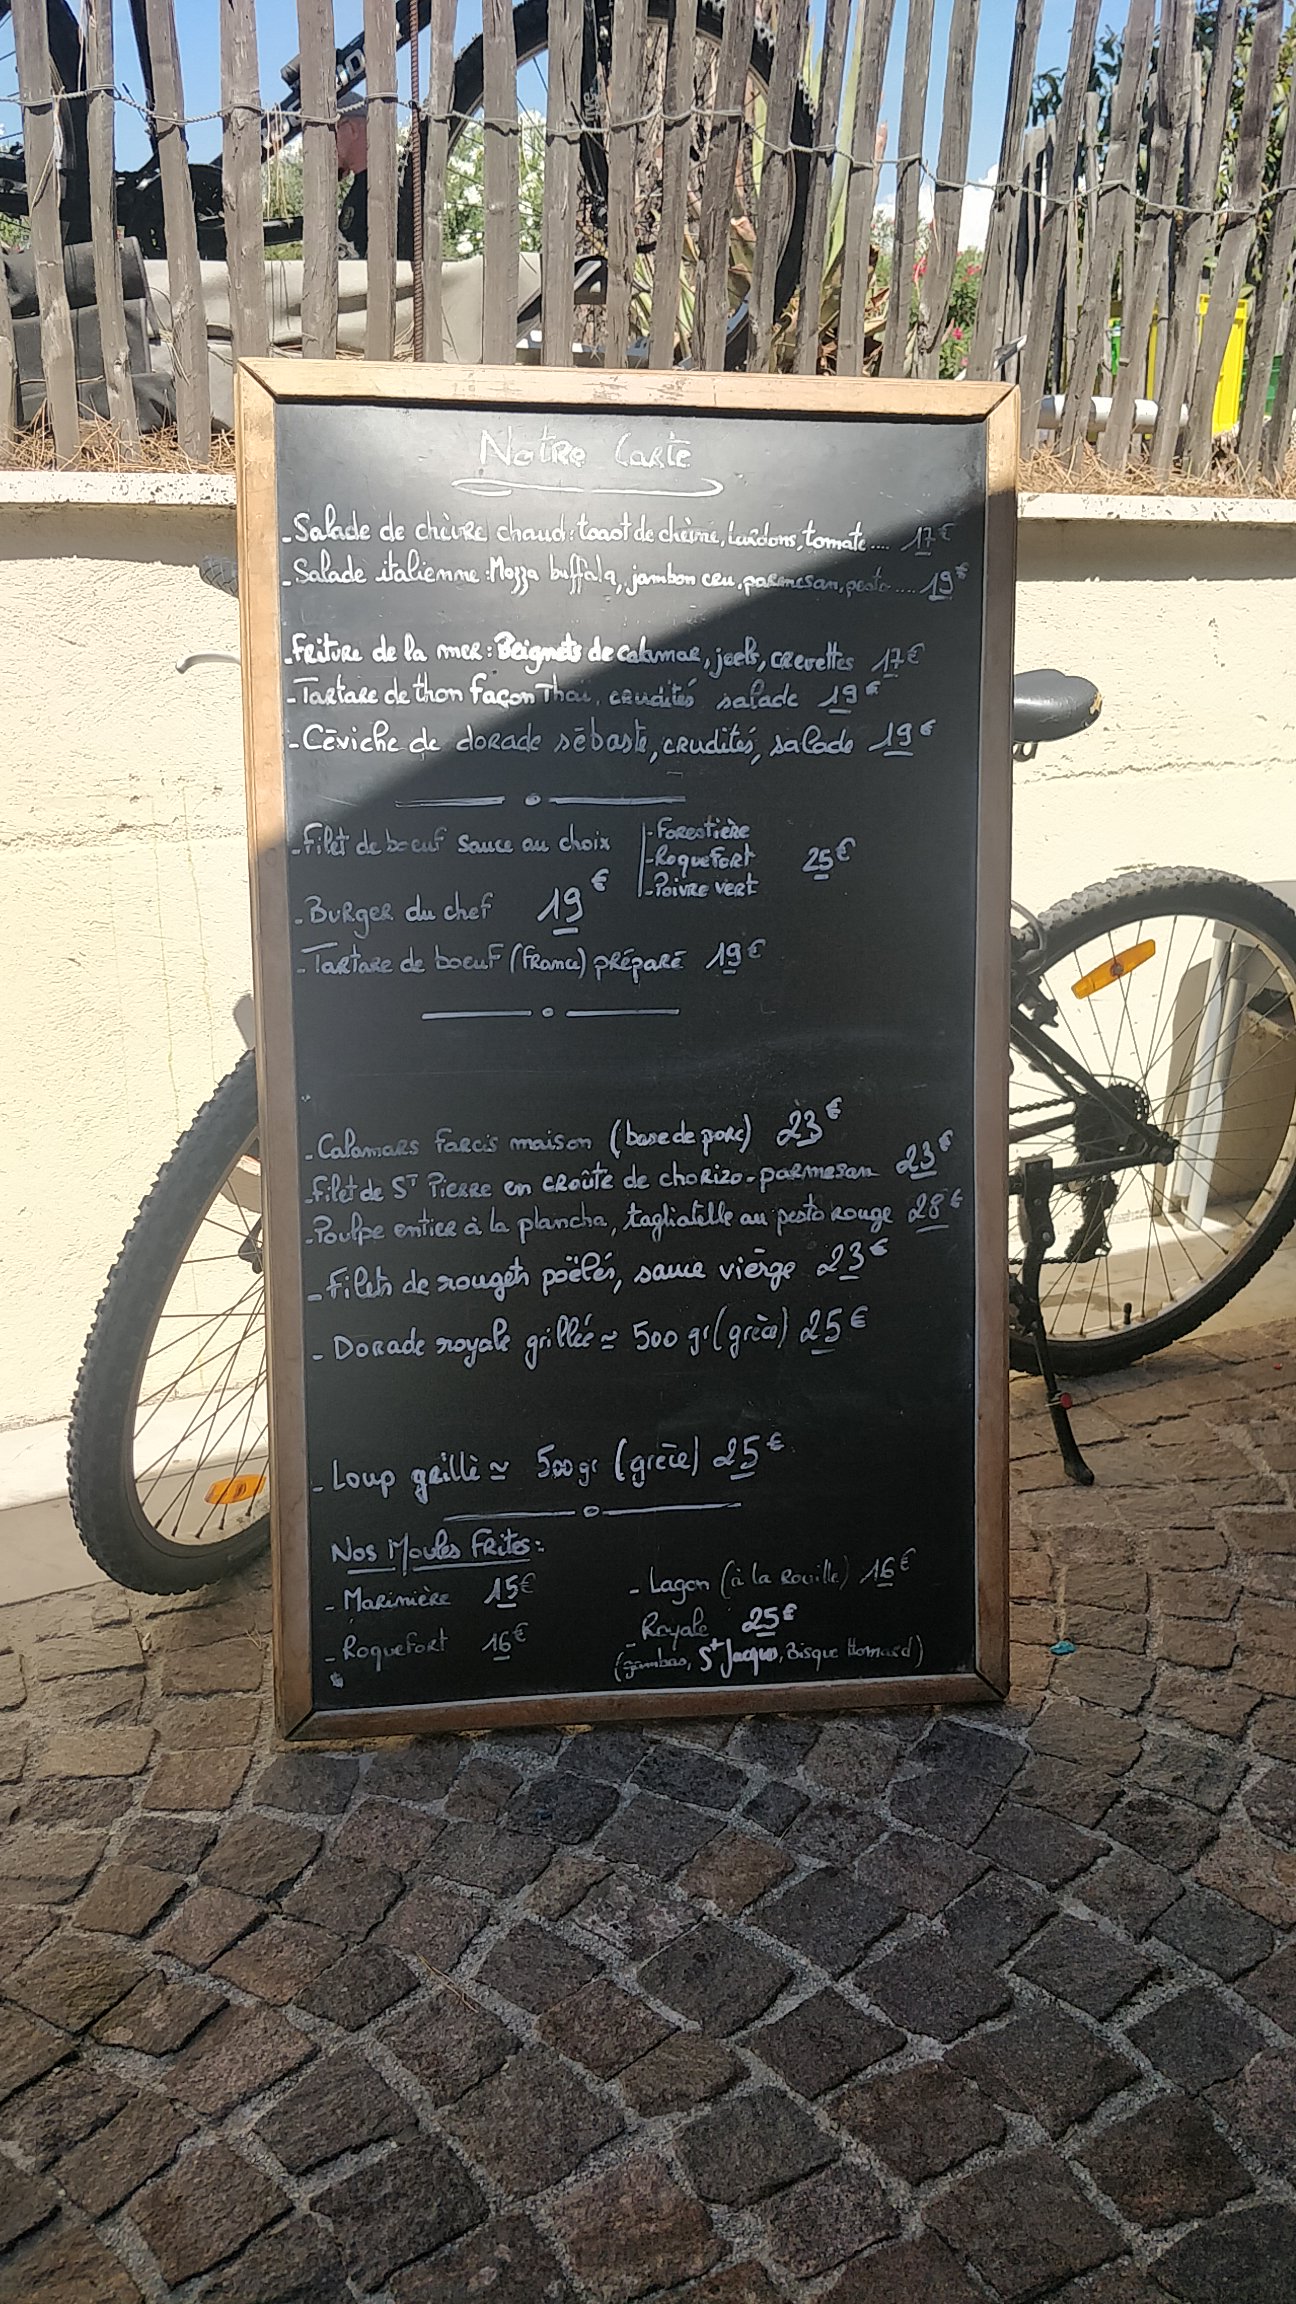 Notre Carte
- Salade de chèvre chaud : toast de chèvre, lardons, tomate.... 17€
- Salade italienne : Mozza buffala, jambon cru, parmesan, pesto.... 19€
- Friture de la mer : Beignets de calamar, joels, crevettes 17€
- Tartare de thon façon Thaï, crudités salade 19€
- Céviche de dorade sébaste, crudités, salade 19€
- Filet de boeuf sauce au choix
- Forestière
- Roquefort
- Poivre vert
25€
- Burger du chef 19€
- Tartare de boeuf (France) préparé 19€
- Calamars farcis maison (base de porc) 23€
- Filet de St Pierre en croûte de chorizo - parmesan 23€
- Poulpe entier à la plancha, tagliatelle au pesto rouge 28€
- Filets de rougets poëlés, sauce vierge 23€
- Dorade royale grillée ≃ 500 gr (grèce) 25€
- Loup grillé ≃ 500 gr (grèce) 25€
Nos Moules Frites :
- Marinière 15€
- Roquefort 16€
- Lagon (à la Rouille) 16€
- Royale 25€
(gambas, St Jacques, Bisque Homard)